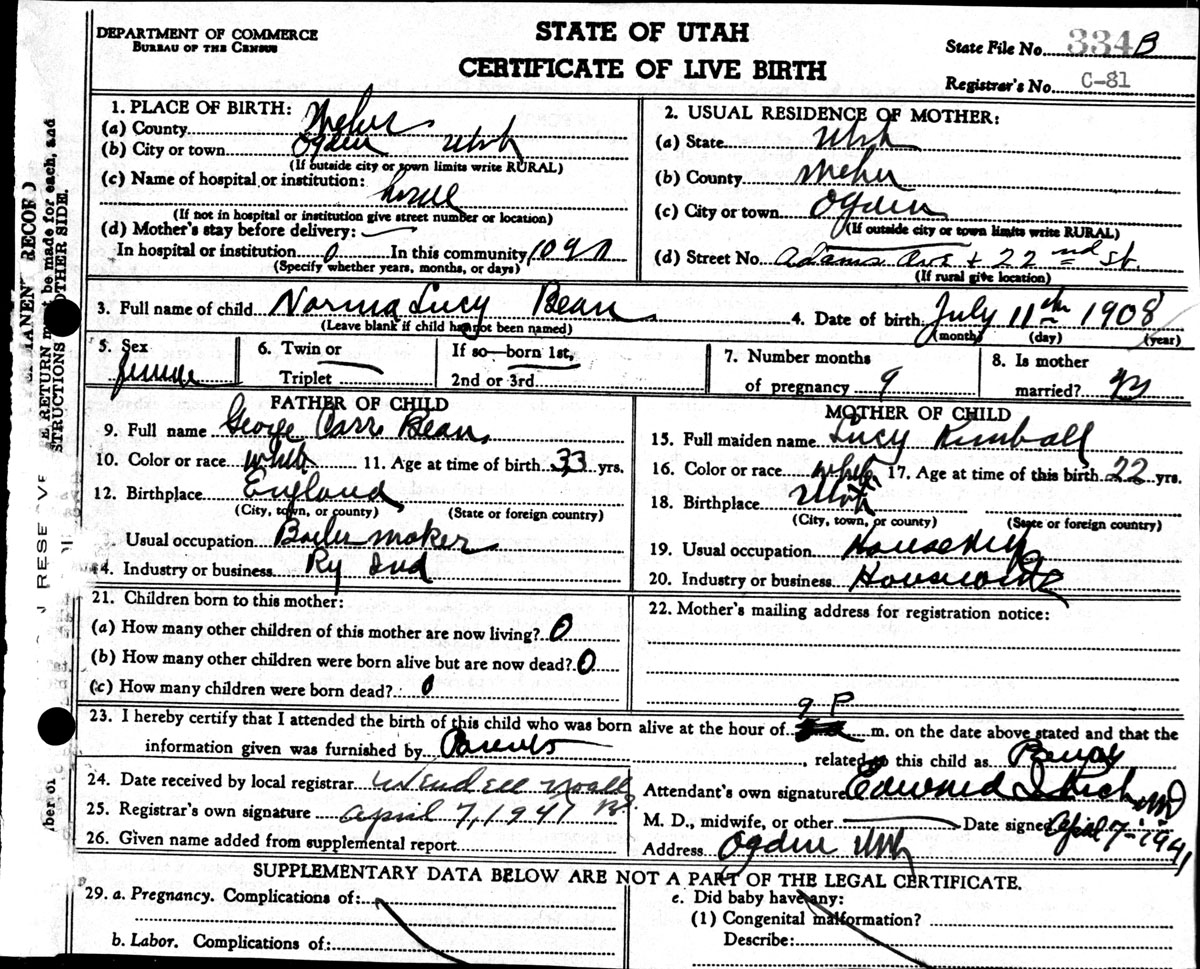 DEPARTMENT OF COMMERCE
BUREAU OF THE CENSUS
STATE OF UTAH
CERTIFICATE OF LIVE BIRTH
State File No. 334 B
Registrar's No. C-81
1. PLACE OF BIRTH:
(a) County Weber
(b) City or town Ogden Utah
(If outside city or town limits write RURAL)
(c) Name of hospital or institution:
(If not in hospital or institution give street number or location)
(d) Mother's stay before delivery:
In hospital or institution 0 In this community 10
(Specify whether years, months, or days)
2. USUAL RESIDENCE OF MOTHER:
(a) State Utah
(b) County Weber
(c) City or town Ogden
(If outside city or town limits write RURAL)
(d) Street No. Adams Ave + 22nd st.
(If rural give location)
3. Full name of child Norma Lucy Bean
(Leave blank if child has not been named)
4. Date of birth July 11th 1908
(month) (day) (year)
5. Sex female
6. Twin or
Triplet
If so—born 1st,
2nd or 3rd
7. Number months
of pregnancy 9
8. Is mother
married?
FATHER OF CHILD
9. Full name George Carr Bean
10. Color or race white 11. Age at time of birth 33 yrs.
12. Birthplace England
(City, town, or county) (State or foreign country)
Usual occupation Boiler maker
14. Industry or business Ry Ind
MOTHER OF CHILD
15. Full maiden name Lucy Kimball
16. Color or race white 17. Age at time of this birth 22 yrs.
18. Birthplace Utah
(City, town, or county) (State or foreign country)
19. Usual occupation
20. Industry or business
21. Children born to this mother:
(a) How many other children of this mother are now living? 0
(b) How many other children were born alive but are now dead? 0
(c) How many children were born dead? 0
22. Mother's mailing address for registration notice:
23. I hereby certify that I attended the birth of this child who was born alive at the hour of 9 P m. on the date above stated and that the
information given was furnished by Parents, related to this child as
24. Date received by local registrar Wendell Noall
25. Registrar's own signature April 7, 1941
26. Given name added from supplemental report
Attendant's own signature Edward I Rich MD
M. D., midwife, or other Date signed April 7-1941
Address Ogden Utah
SUPPLEMENTARY DATA BELOW ARE NOT A PART OF THE LEGAL CERTIFICATE.
29. a. Pregnancy. Complications of:
b. Labor. Complications of:
e. Did baby have any:
(1) Congenital malformation?
Describe: